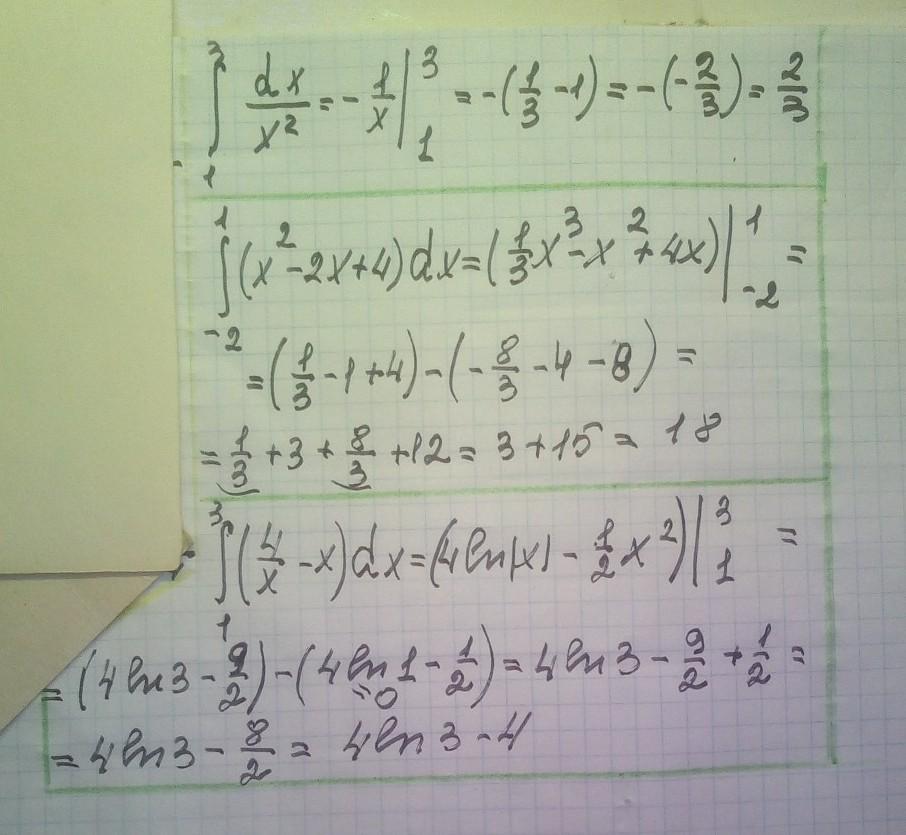 ∫₁³ dx/x² = -1/x |₁³ = -(1/3 - 1) = -(-2/3) = 2/3
∫₋₂¹ (x² - 2x + 4) dx = (1/3 x³ - x² + 4x) |₋₂¹ =
= (1/3 - 1 + 4) - (-8/3 - 4 - 8) =
= 1/3 + 3 + 8/3 + 12 = 3 + 15 = 18
∫₁³ (4/x - x) dx = (4 ln|x| - 1/2 x²) |₁³ =
= (4 ln 3 - 9/2) - (4 ln 1 - 1/2) = 4 ln 3 - 9/2 + 1/2 =
=0
= 4 ln 3 - 8/2 = 4 ln 3 - 4